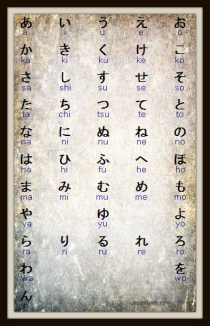 あ い う え お
a i u e o
か き く け こ
ka ki ku ke ko
さ し す せ そ
sa shi su se so
た ち つ て と
ta chi tsu te to
な に ぬ ね の
na ni nu ne no
は ひ ふ へ ほ
ha hi fu he ho
ま み む め も
ma mi mu me mo
や ゆ よ
ya yu yo
ら り る れ ろ
ra ri ru re ro
わ を
wa wo
ん